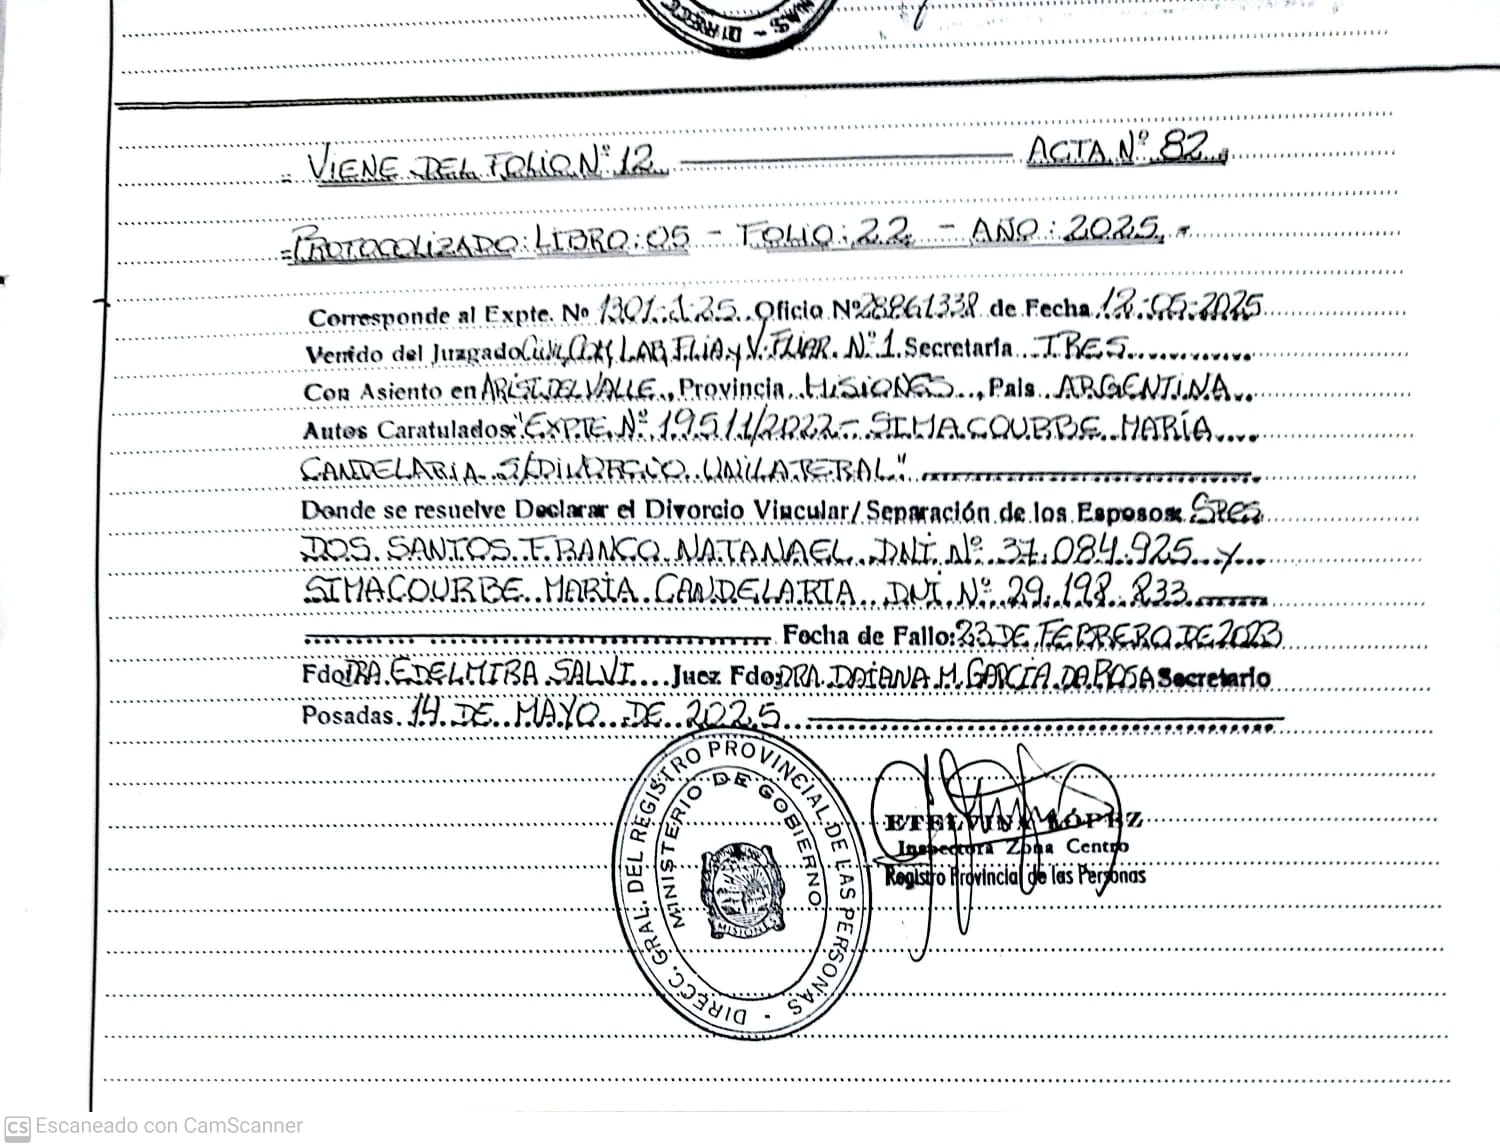 VIENE DEL FOLIO Nº 12 ACTA Nº 82.
=PROTOCOLIZADO: LIBRO: 05 - FOLIO: 22 - AÑO: 2025.-
Corresponde al Expte. No 1301-1-25. Oficio Nº 28861338 de Fecha 12-05-2025
Venido del Juzgado Civil, Com, LAB, FLIA y V. FLIAR. Nº 1. Secretaría TRES
Con Asiento en ARIST. DEL VALLE, Provincia MISIONES, País ARGENTINA
Autos Caratulados: "EXPTE. Nº 19511/2022 - SIMACOURBE MARÍA
CANDELARIA S/DIVORCIO UNILATERAL"
Donde se resuelve Declarar el Divorcio Vincular/Separación de los Esposos: SRES
DOS SANTOS FRANCO NATANAEL DNI Nº 37.084.925 y
SIMACOURBE MARÍA CANDELARIA DNI Nº 29.198.833
Fecha de Fallo: 23 DE FEBRERO DE 2023
Fdo DRA. EDELMIRA SALVI Juez Fdo: DRA. DAIANA M. GARCÍA DA ROSA Secretario
Posadas 14 DE MAYO DE 2025
DIRECC. GRAL. DEL REGISTRO PROVINCIAL DE LAS PERSONAS -
MINISTERIO DE GOBIERNO
MISIONES
ETELVINA LÓPEZ
Inspectora Zona Centro
Registro Provincial de las Personas
CS Escaneado con CamScanner